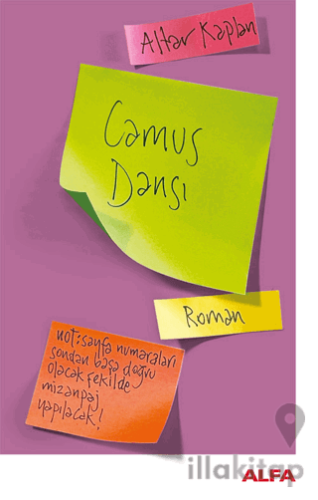 Altar Kaplan
Camus
Dansı
Roman
not: sayfa numaraları
sondan başa doğru
olacak şekilde
mizanpaj
yapılacak!
illakitap
ALFA